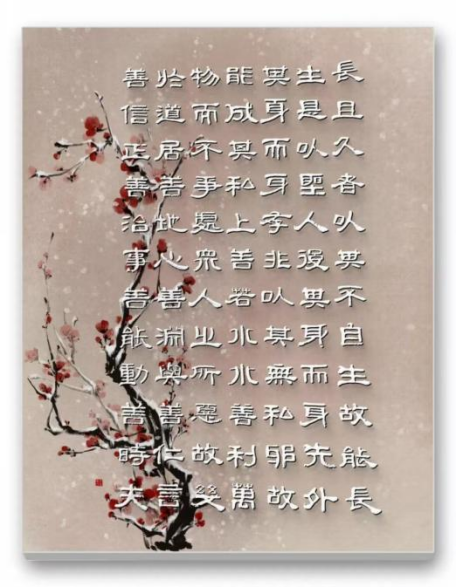 長且久者以其不自生故能長
生是以聖人後其身而身先外
其身而身存非以其無私邪故
能成其私上善若水水善利萬
物而不爭處眾人之所惡故幾
於道居善地心善淵與善仁言
善信正善治事善能動善時夫